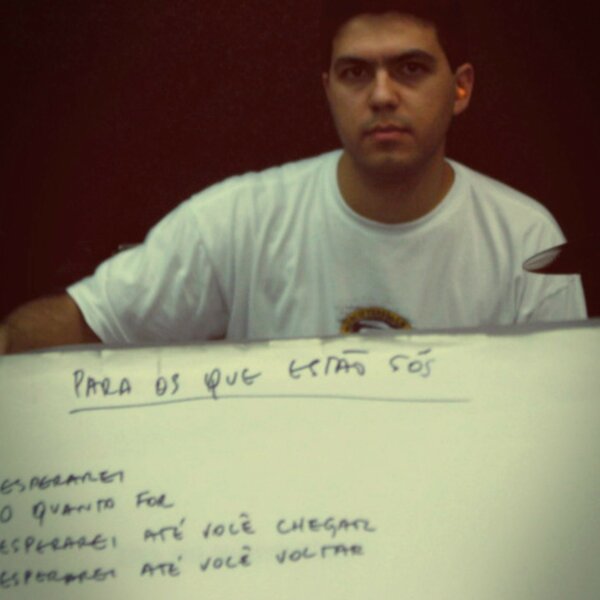 PARA OS QUE ESTÃO SÓS
ESPERAREI
O QUANTO FOR
ESPERAREI ATÉ VOCÊ CHEGAR
ESPERAREI ATÉ VOCÊ VOLTAR